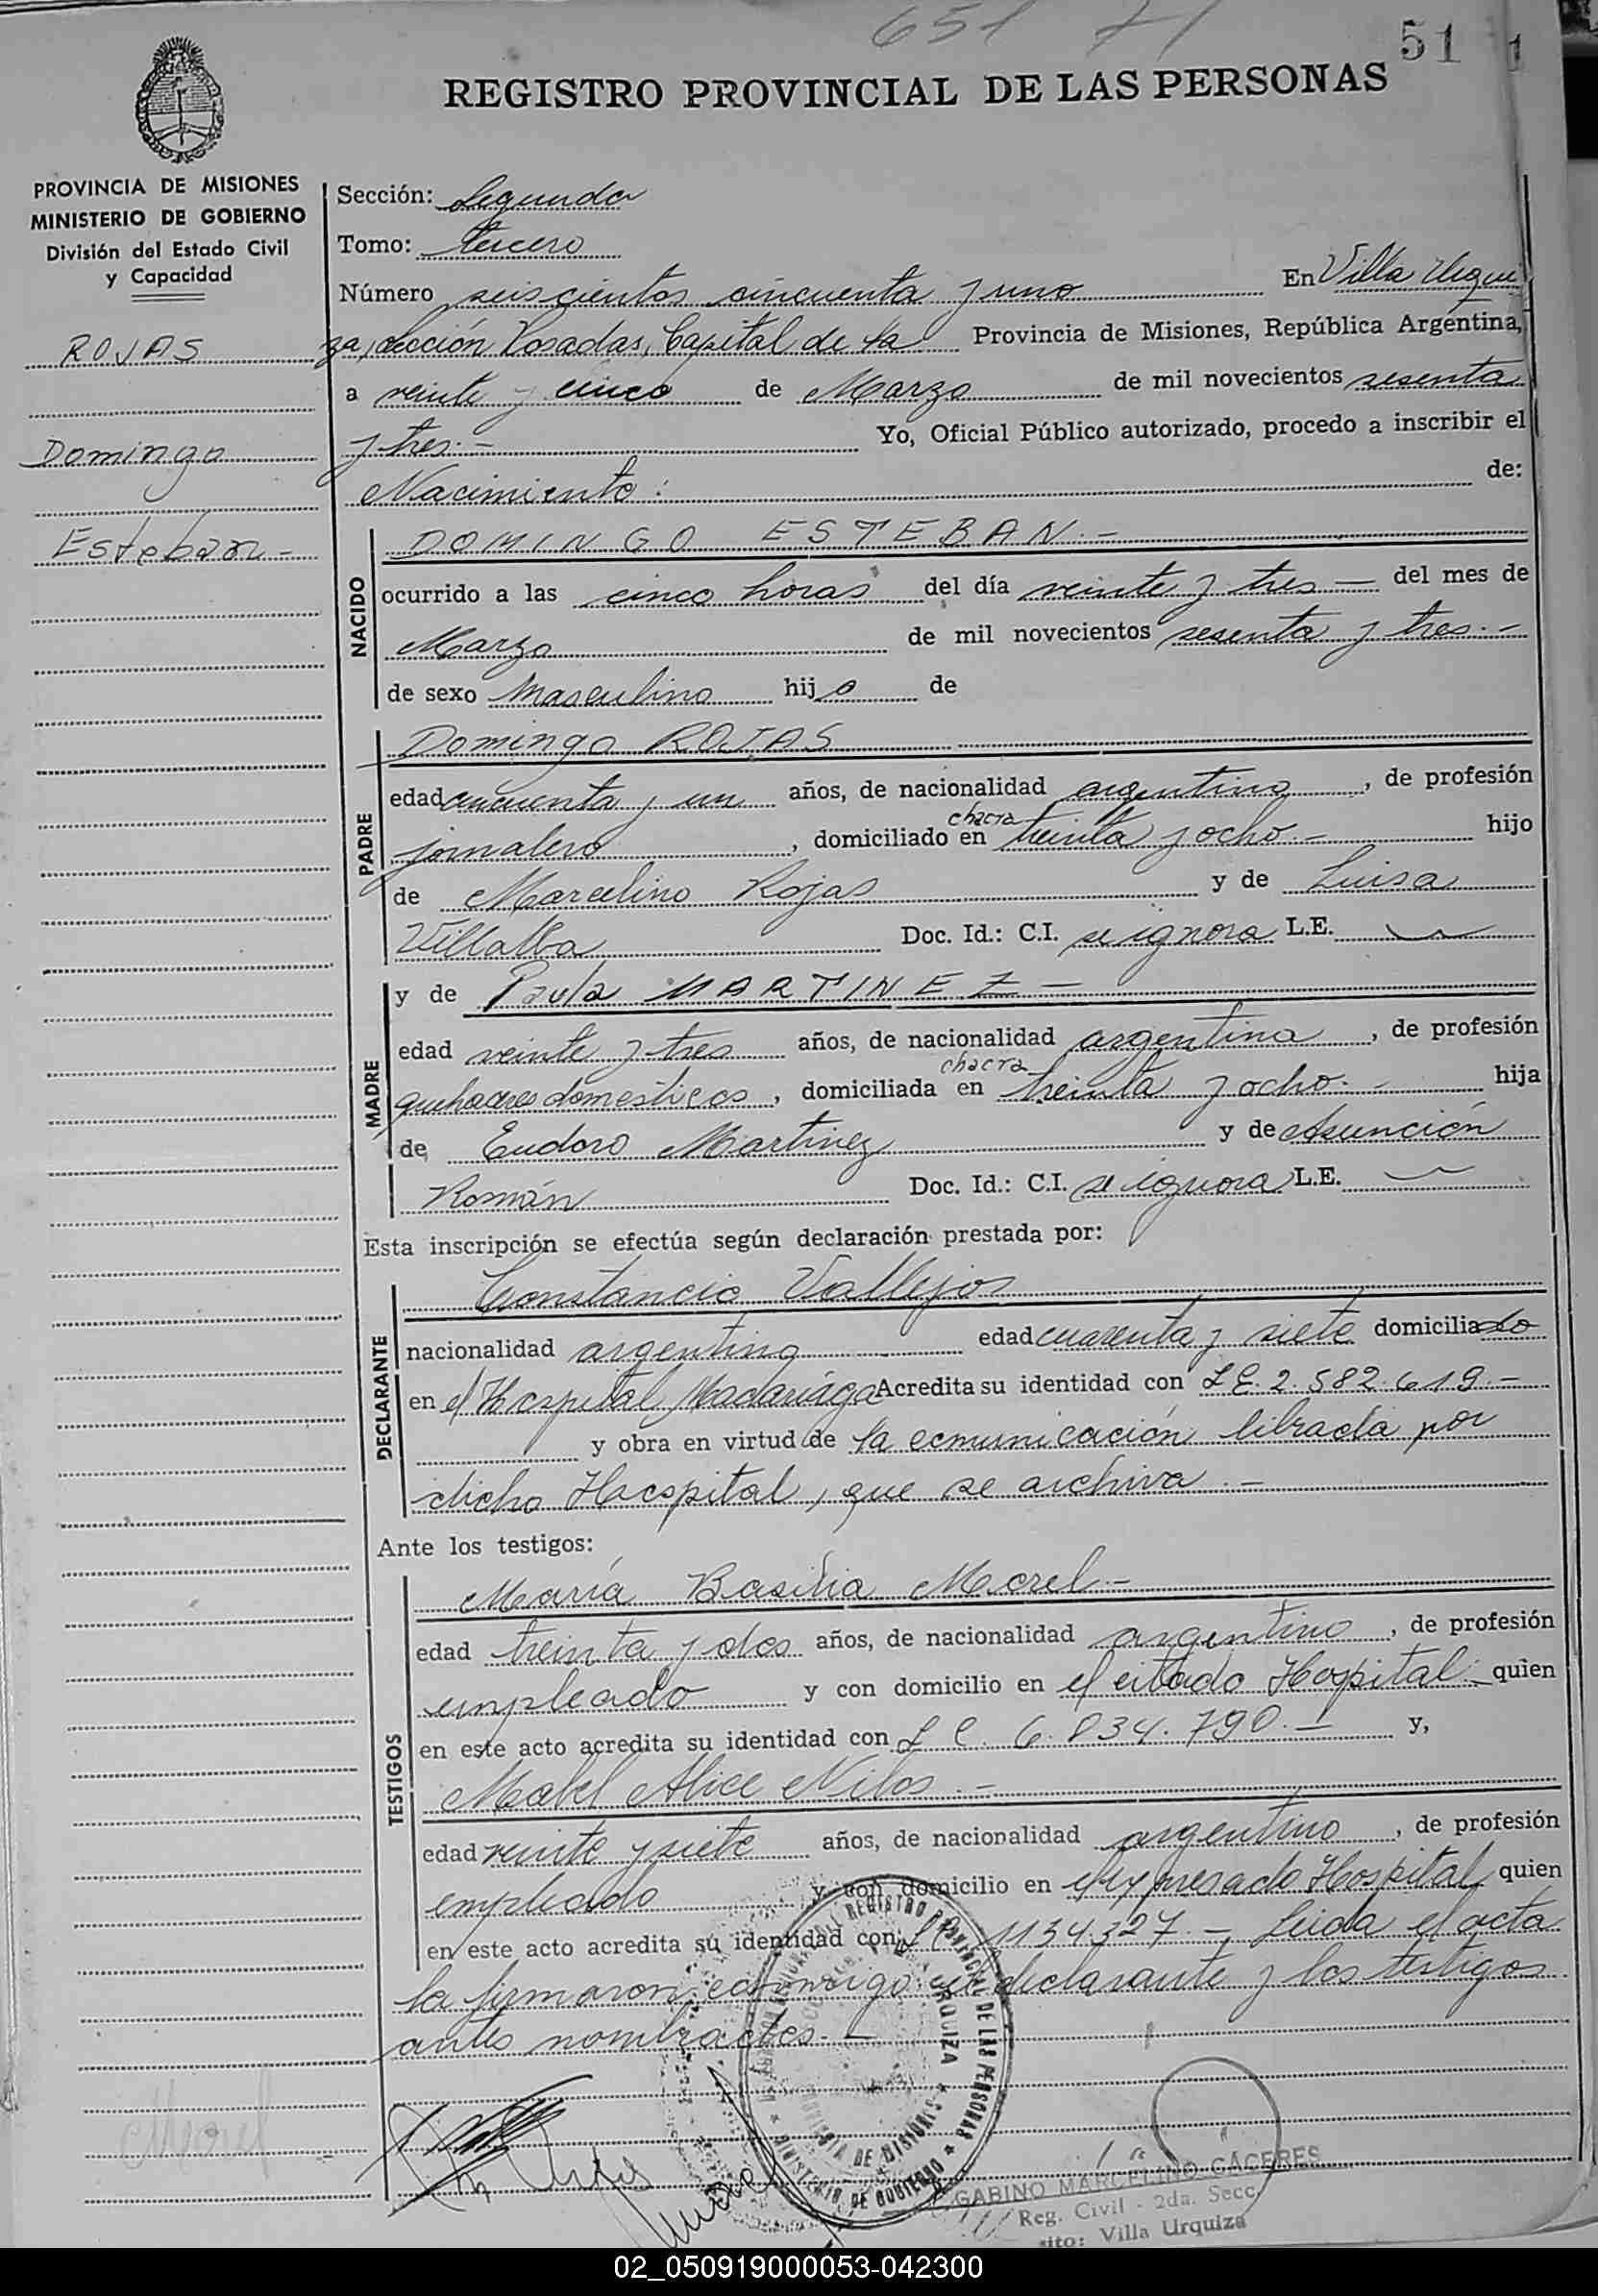 651 71
51 1
REGISTRO PROVINCIAL DE LAS PERSONAS
PROVINCIA DE MISIONES
MINISTERIO DE GOBIERNO
División del Estado Civil
y Capacidad
ROJAS
Domingo
Esteban -
Sección: Segunda
Tomo: tercero
Número seiscientos cincuenta y uno En Villa Urqui
za, sección Posadas, Capital de la Provincia de Misiones, República Argentina,
a veinte y cinco de Marzo de mil novecientos sesenta
y tres.- Yo, Oficial Público autorizado, procedo a inscribir el
Nacimiento: de:
NACIDO
DOMINGO ESTEBAN.-
ocurrido a las cinco horas del día veinte y tres - del mes de
Marzo de mil novecientos sesenta y tres.-
de sexo Masculino hijo de
PADRE
Domingo ROJAS
edad cincuenta y un años, de nacionalidad argentina, de profesión
jornalero, domiciliado en chacra treinta y ocho.- hijo
de Marcelino Rojas y de Luisa
Villalba Doc. Id.: C.I. se ignora L.E.
MADRE
y de Paula MARTINEZ -
edad veinte y tres años, de nacionalidad argentina, de profesión
quehaceres domésticos, domiciliada en chacra treinta y ocho.- hija
de Eudoro Martinez y de Asunción
Román Doc. Id.: C.I. se ignora L.E.
Esta inscripción se efectúa según declaración prestada por:
DECLARANTE
Constancio Vallejos
nacionalidad argentina edad cuarenta y siete domiciliado
en el Hospital Madariaga Acredita su identidad con L.E. 2.582.619.-
y obra en virtud de la comunicación librada por
dicho Hospital, que se archiva.-
Ante los testigos:
TESTIGOS
María Basilia Morel.-
edad treinta y dos años, de nacionalidad argentino, de profesión
empleado y con domicilio en el citado Hospital.- quien
en este acto acredita su identidad con L C. 6.834.790.- y,
Mabel Alice Nilos.-
edad veinte y siete años, de nacionalidad argentino, de profesión
empleado y con domicilio en el expresado Hospital quien
en este acto acredita su identidad con L C 1134327.- Leida el acta
la firmaron conmigo el declarante y los testigos
antes nombrados.-
Morel
REGISTRO PROVINCIAL DE LAS PERSONAS
URQUIZA
PROVINCIA DE MISIONES
MINISTERIO DE GOBIERNO
GABINO MARCELINO CÁCERES
Reg. Civil - 2da. Secc.
sito: Villa Urquiza
02_050919000053-042300